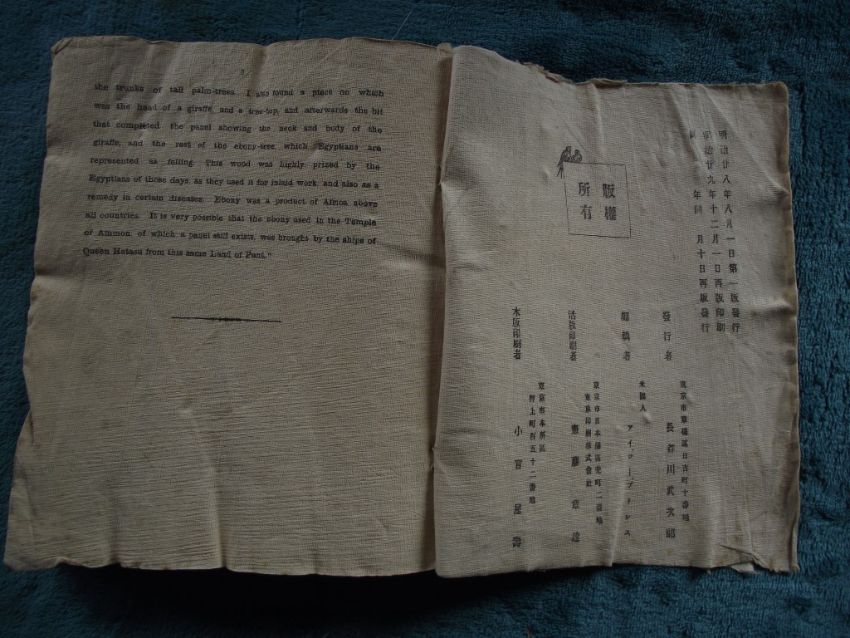 3
the trunks of tall palm-trees. I also found a piece on which
was the head of a giraffe, and a tree-top, and afterwards the bit
that completed the panel showing the neck and body of the
giraffe, and the rest of the ebony-tree, which Egyptians are
represented as felling. This wood was highly prized by the
Egyptians of those days, as they used it for inlaid work, and also as a
remedy in certain diseases. Ebony was a product of Africa above
all countries. It is very possible that the ebony used in the Temple
of Ammon, of which a panel still exists, was brought by the ships of
Queen Hatasu from this same Land of Punt."
明治廿八年八月一日第一版發行
明治廿九年十二月一日再版印刷
同年同月十日再版發行
版權
所有
發行者
東京市京橋區日吉町十番地
長谷川武次郎
編輯者
米國人
活版印刷者
東京市日本橋區兜町二番地
東京印刷株式會社
齋藤章達
木版印刷者
東京市本所區
五十二番地
小宮屋壽